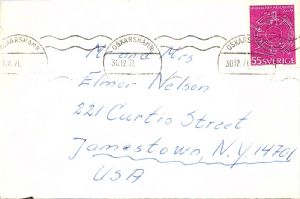 OSKARSHAMN OSKARSHAMN OSKARSHAMN
.12.71. 30.12.71. 30.12.71
55 SVERIGE
Mr and Mrs
Elmer Nelson
221 Curtis Street
Jamestown, N.Y. 14701
USA